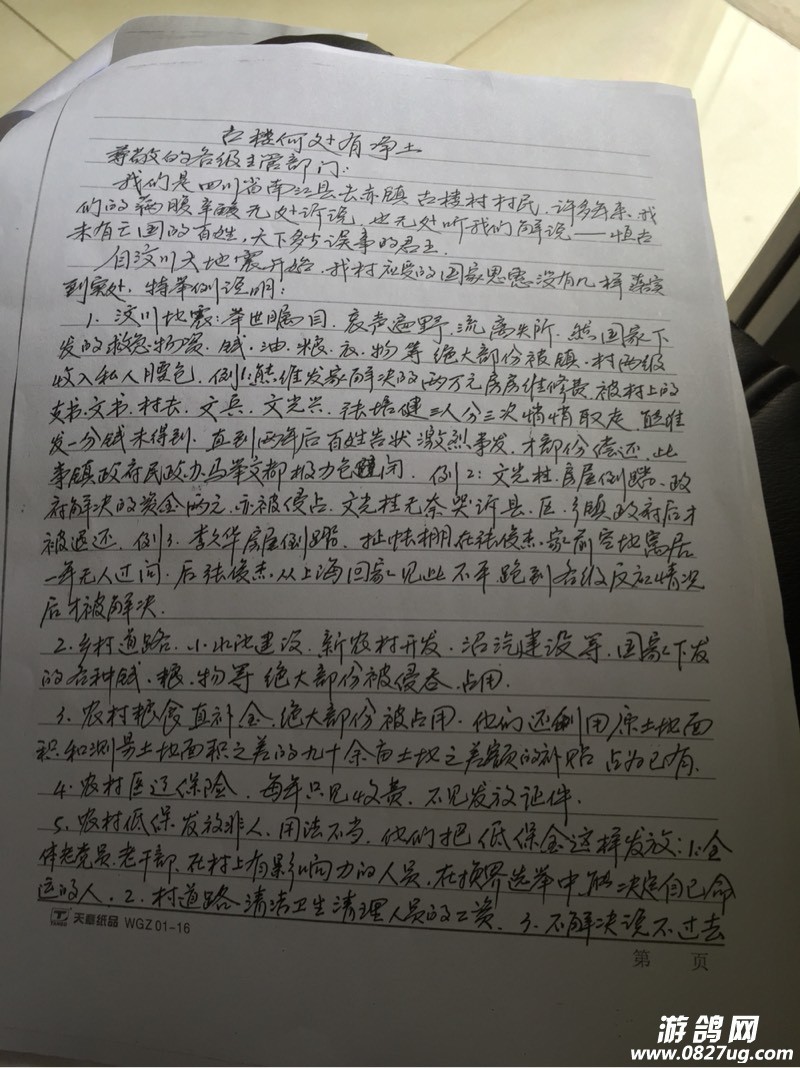 古楼何处有净土
尊敬的各级主管部门：
我们是四川省南江县去亦镇古楼村村民，许多年来，我
们的满腹辛酸无处诉说，也无处听我们解说——恒古
未有亡国的百姓，天下多与误事的君王.
自汶川大地震开始，我村应受的国家恩惠没有几样落实
到实处，特举例说明：
1. 汶川地震：举世瞩目，哀声遍野，流离失所，国家下
发的救急物资、钱、油、粮、衣、物等绝大部份被镇、村两级
收入私人腰包，例1：熊维发家解决的两万元房屋维修费被村上的
支书、文书、村长、文兵、文光兴、张培健三人分三次悄悄取走，熊维
发一分钱未得到. 直到两年后百姓告状激烈事发，才部份偿还，此
事镇政府民政办马举文都极力包 闭. 例2：文光桂房屋倒塌，政
府解决的资金两元，亦被侵占，文光桂无奈哭诉县、区、乡镇政府后才
被退还. 例3：李久华房屋倒塌，扯帐棚在张俊杰家前空地寓居
一年无人过问. 后张俊杰从上海回家见此不平跑到各级反应情况
后才被解决.
2. 乡村道路、小水池建设、新农村开发、沼汽建设等，国家下发
的各种钱、粮、物等绝大部份被侵吞、占用.
3. 农村粮食直补金，绝大部份被占用. 他们还利用原土地面
积和测量土地面积之差的九十余亩土地之差额的补贴占为已有.
4. 农村医辽保险，每年只见收费，不见发放证件.
5. 农村低保发放非人，用法不当，他们把低保金这样发放：1. 全
体老党员、老干部，在村上有影响力的人员，在换界选举中能决定自己命
运的人. 2. 村道路清洁卫生清理人员的工资. 3. 不解决说不过去
天章纸品 WGZ 01-16
第 页
游鸽网
www.0827ug.com